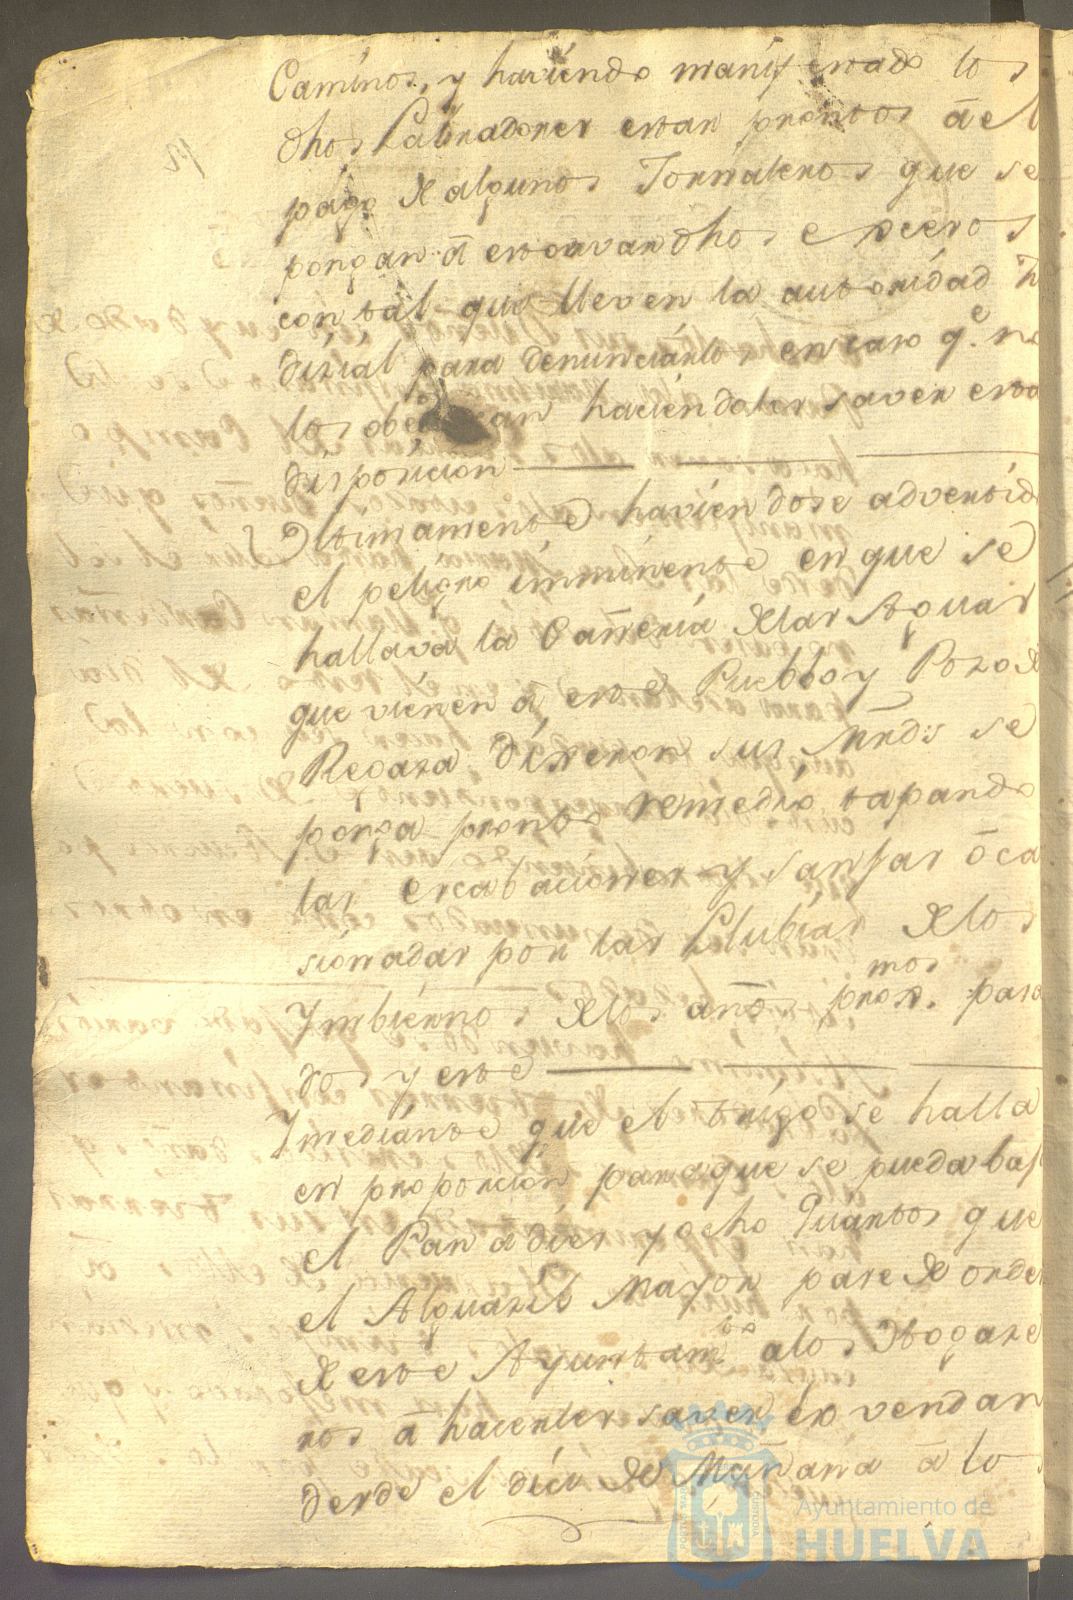 Caminos, y haviendo manifestado los
dhos Labradores estar prontos ã el
pago de algunos Jornaleros que se
pongan ã estorvar dhos excesos
con tal que lleven la autoridad Ju
disial para denunciarlos en caso q.e no
los obedescan haciendoles saver esta
disposicion
Ultimamente haviendose advertid
el peligro imminente en que se
hallava la Cañeria de las Aguas
que vienen ã este Pueblo y Pozo de
Regaza dixeron sus Mrds se
ponga pronto remedio tapando
las escabaciones y sanjas õca
sionadas por las Llubias de los
Ymbiernos de los años proxmos. pasa
dos y este
Ymediante que el trigo se halla
en proporcion para que se pueda bajr
el Pan a dies y ocho Quartos que
el Alguazil Mayor pase de orde
de este Ayuntam.to a los Atogare
ros ã hacerles saver lo vendan
desde el dia de Mañana ã lo
Ayuntamiento de
HUELVA